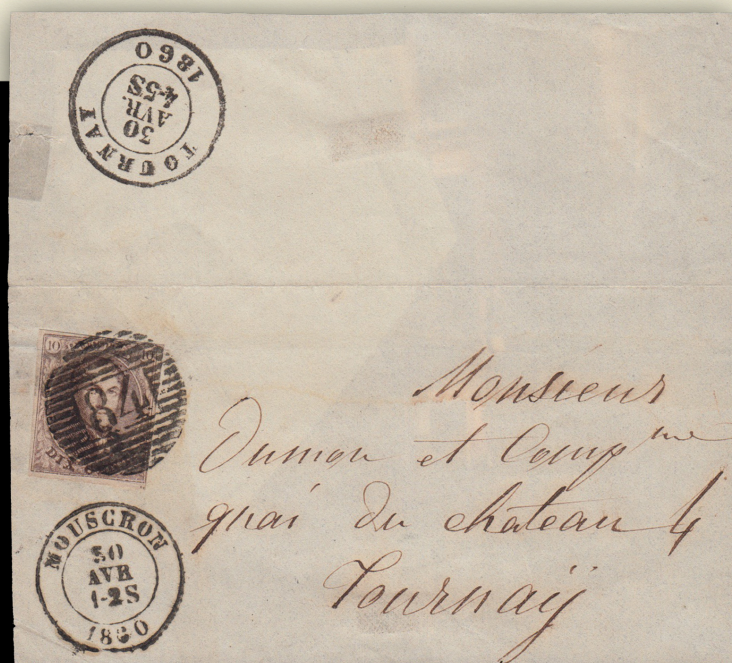 TOURNAI
30
AVR.
4-5S
1860
10
84
DIX
Monsieur
Dumon et Comp
quai du chateau 4
Tournaÿ
MOUSCRON
30
AVR
1-2S
1860